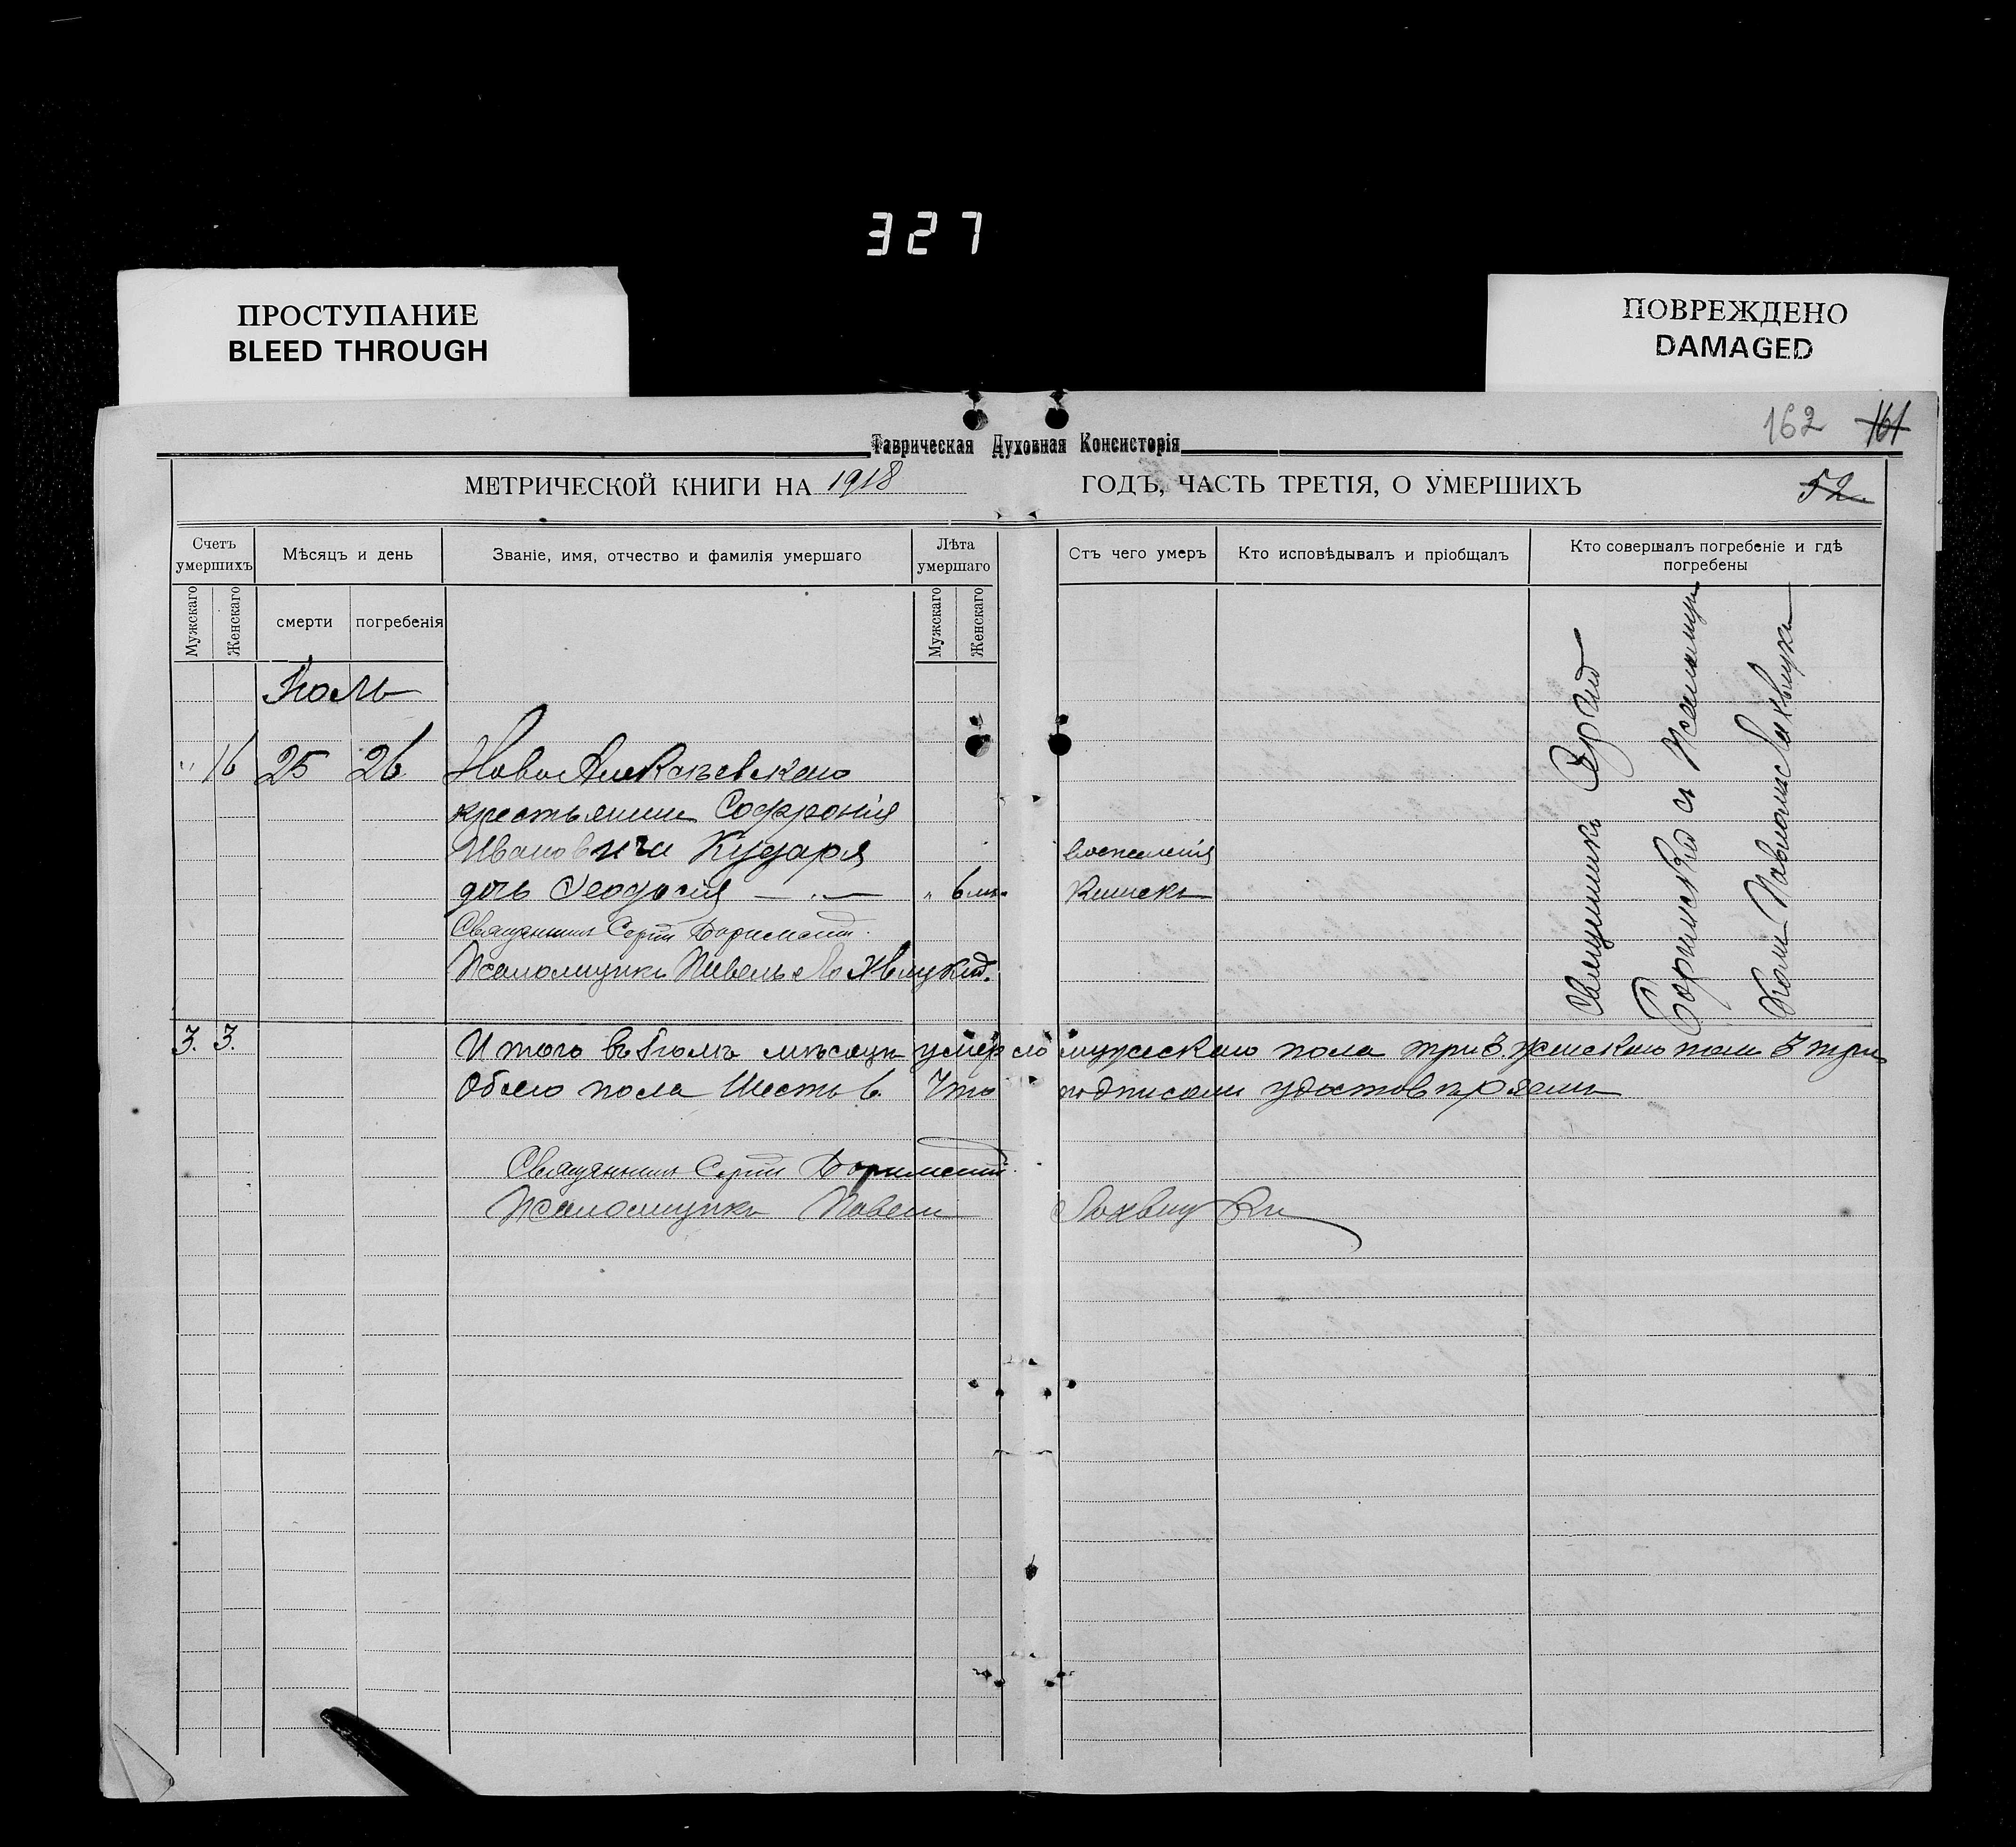 327
ПРОСТУПАНИЕ
BLEED THROUGH
ПОВРЕЖДЕНО
DAMAGED
162 161
Таврическая Духовная Консисторія
МЕТРИЧЕСКОЙ КНИГИ НА 1918 ГОДЪ, ЧАСТЬ ТРЕТІЯ, О УМЕРШИХЪ
52
Счетъ умершихъ
Мужскаго
Женскаго
Мѣсяцъ и день
смерти
погребенія
Званіе, имя, отчество и фамилія умершаго
Лѣта умершаго
Мужскаго
Женскаго
Отъ чего умеръ
Кто исповѣдывалъ и пріобщалъ
Кто совершалъ погребеніе и гдѣ погребены
Іюль
" 16 25 26 Ново Алексѣевскаго
крестьянина Софронія
Ивановича Кударя
дочь Феодосія " 6 м.
воспаленія
кишекъ
Священникъ Сергій
Псаломщикъ Павелъ Лохвицкій.
Священникъ Сергій
съ Псаломщи
комъ Павломъ Лохвицки
3. 3. Итого въ Іюлѣ мѣсяцѣ умерло мужескаго пола три 3. женскаго пола 3 три
Обоего пола Шесть 6. Что подписами удостовѣряемъ
Священникъ Сергій
Псаломщикъ Павелъ Лохвицкі